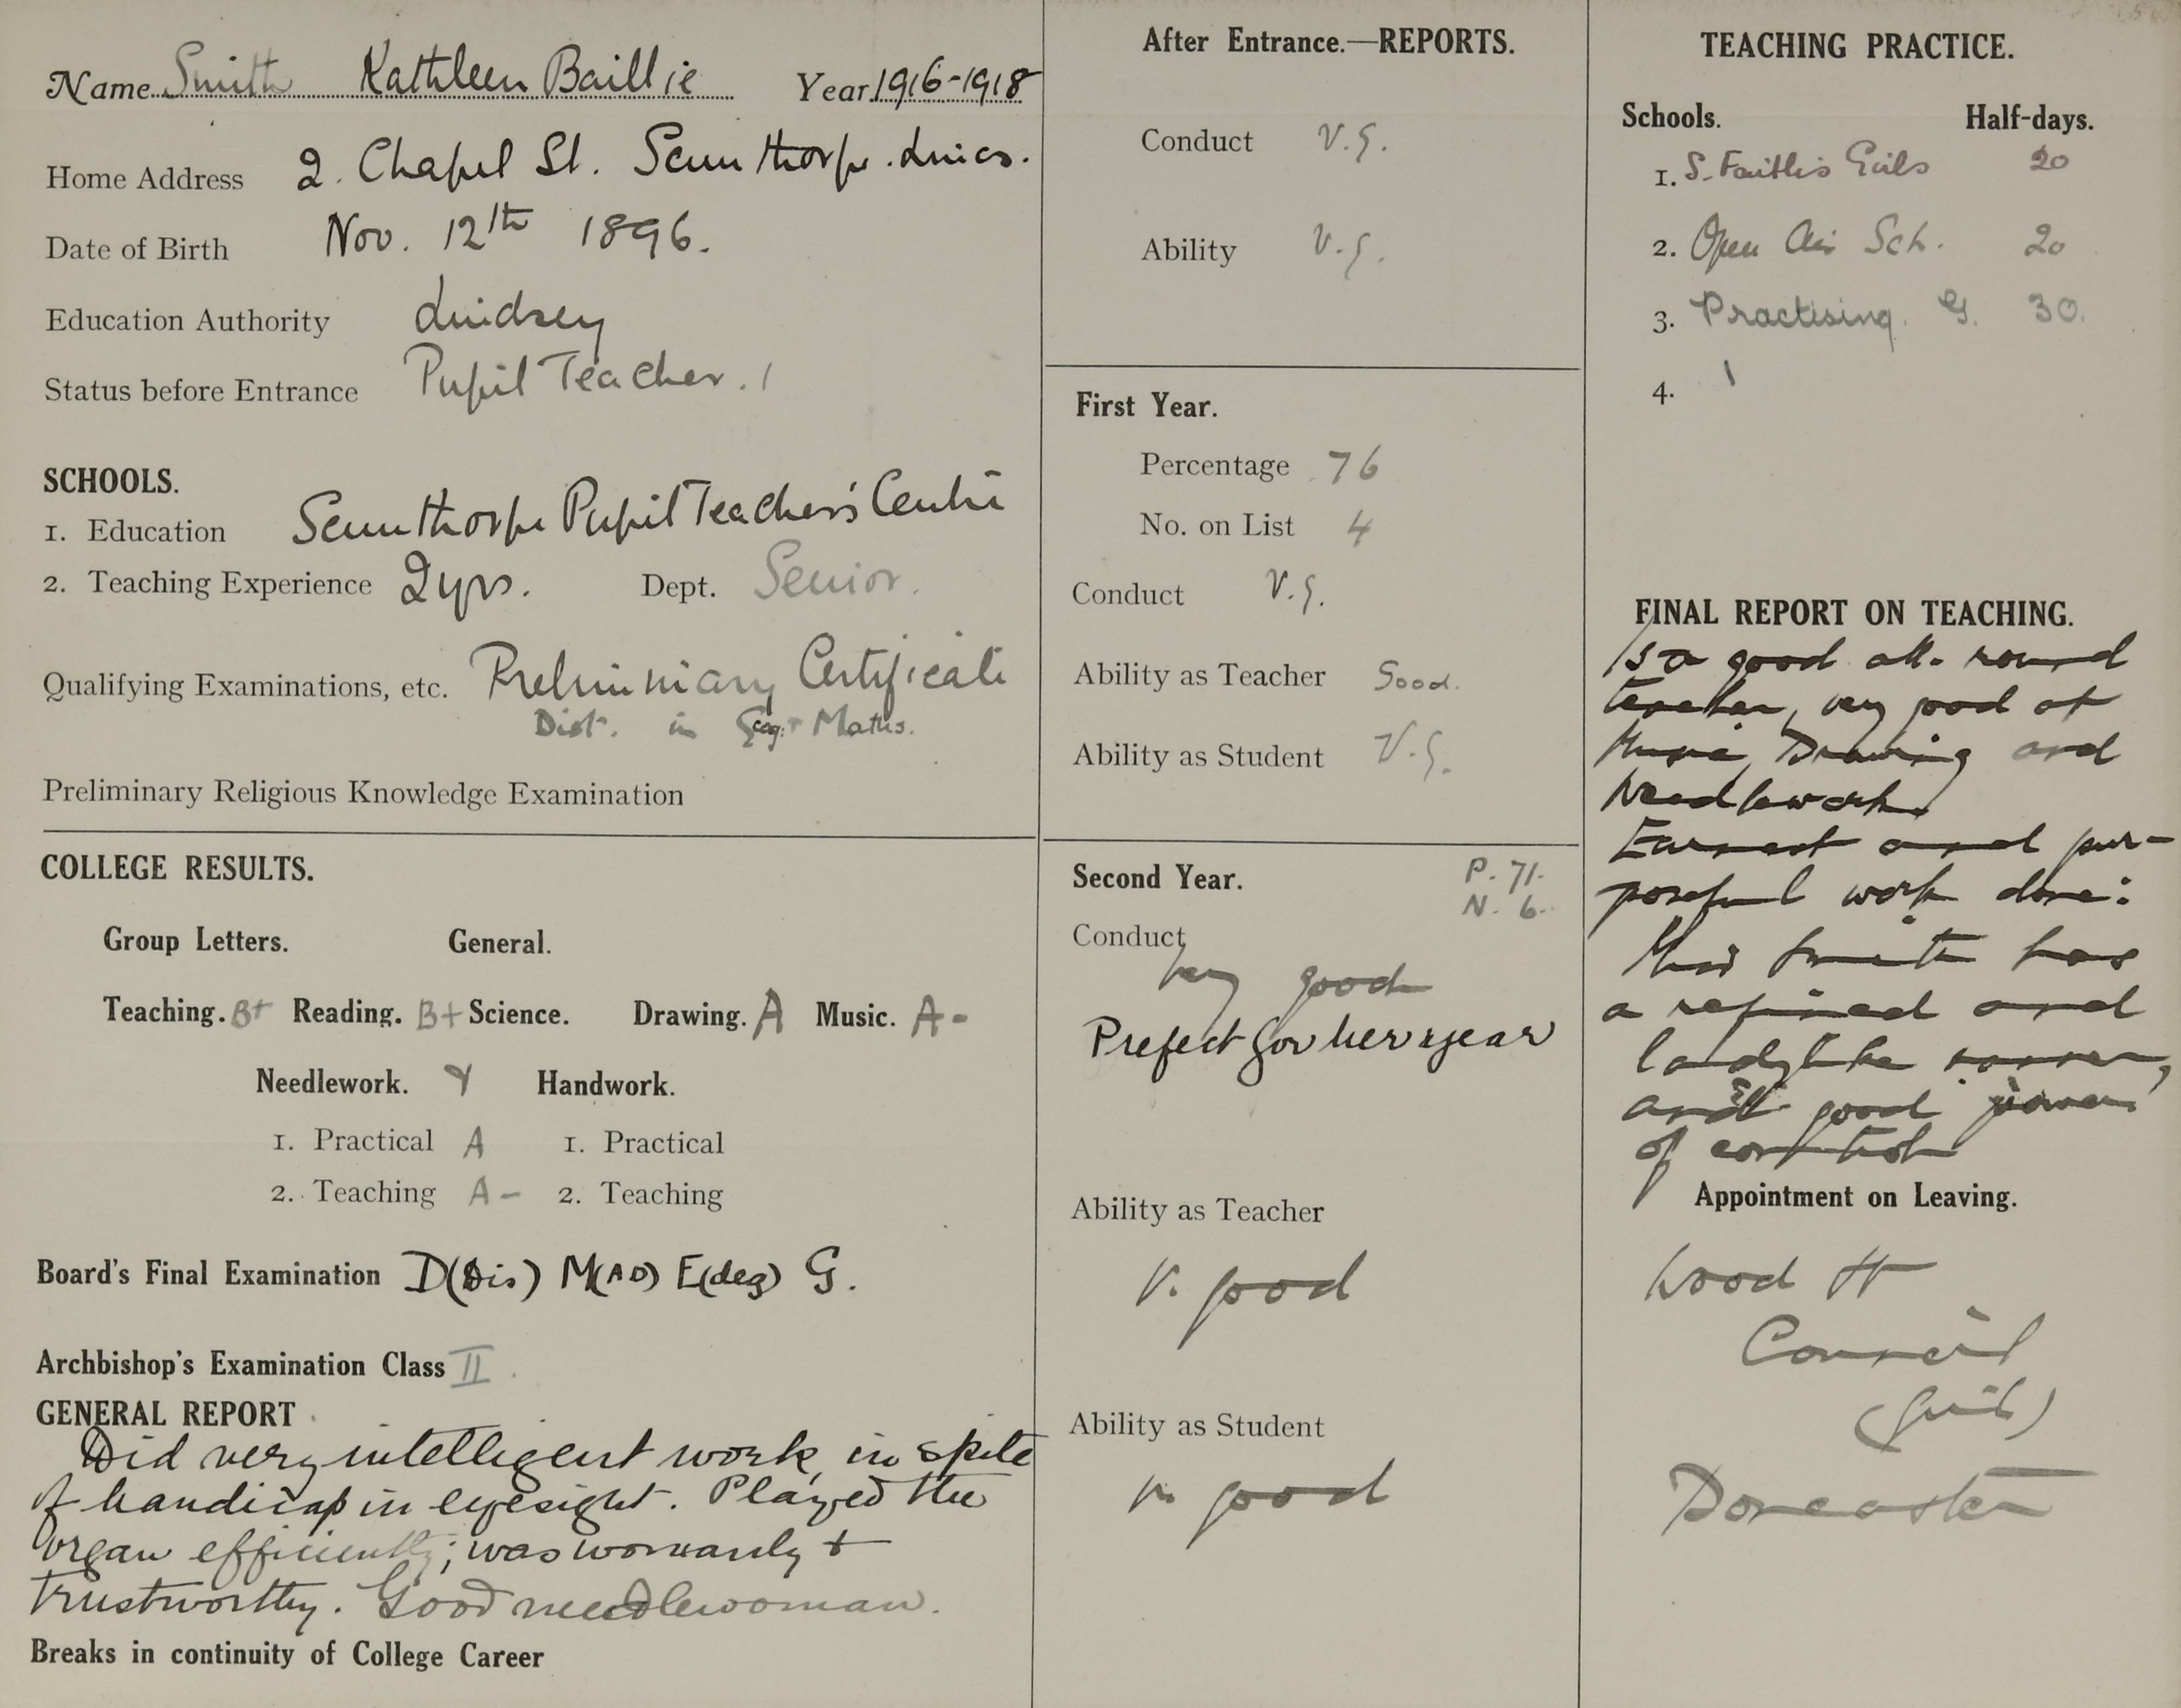 Name Smith Kathleen Baillie Year 1916-1918
Home Address 2. Chapel St. Scunthorpe. Lincs.
Date of Birth Nov. 12th 1896.
Education Authority Lindsey
Status before Entrance Pupil Teacher.
SCHOOLS.
1. Education Scunthorpe Pupil Teacher's Centre
2. Teaching Experience 2 yrs. Dept. Senior.
Qualifying Examinations, etc. Preliminary Certificate
Dist. in Geog. + Maths.
Preliminary Religious Knowledge Examination
COLLEGE RESULTS.
Group Letters. General.
Teaching. B+ Reading. B+ Science. Drawing. A Music. A-
Needlework. Handwork.
1. Practical A 1. Practical
2. Teaching A- 2. Teaching
Board's Final Examination D(Dis) M(AD) E(deg) G.
Archbishop's Examination Class II.
GENERAL REPORT
Did very intelligent work, in spite
of handicap in eyesight. Played the
organ efficiently; was womanly +
trustworthy. Good needlewoman.
Breaks in continuity of College Career
After Entrance.—REPORTS.
Conduct V.G.
Ability V.G.
First Year.
Percentage 76
No. on List 4
Conduct V.G.
Ability as Teacher Good.
Ability as Student V.G.
Second Year. P. 71.
N. 6.
Conduct
Very good
Prefect for her year
Ability as Teacher
V. good
Ability as Student
V. good
TEACHING PRACTICE.
Schools. Half-days.
1. S. Faith's Girls 20
2. Open Air Sch. 20
3. Practising. G. 30.
4.
FINAL REPORT ON TEACHING.
Is a good all-round
teacher, very good at
Music, Drawing and
Needlework.
Earnest and pur-
poseful work done:
Miss Smith has
a refined and
ladylike manner,
and good power
of control
Appointment on Leaving.
Wood St
Council
(Girls)
Doncaster